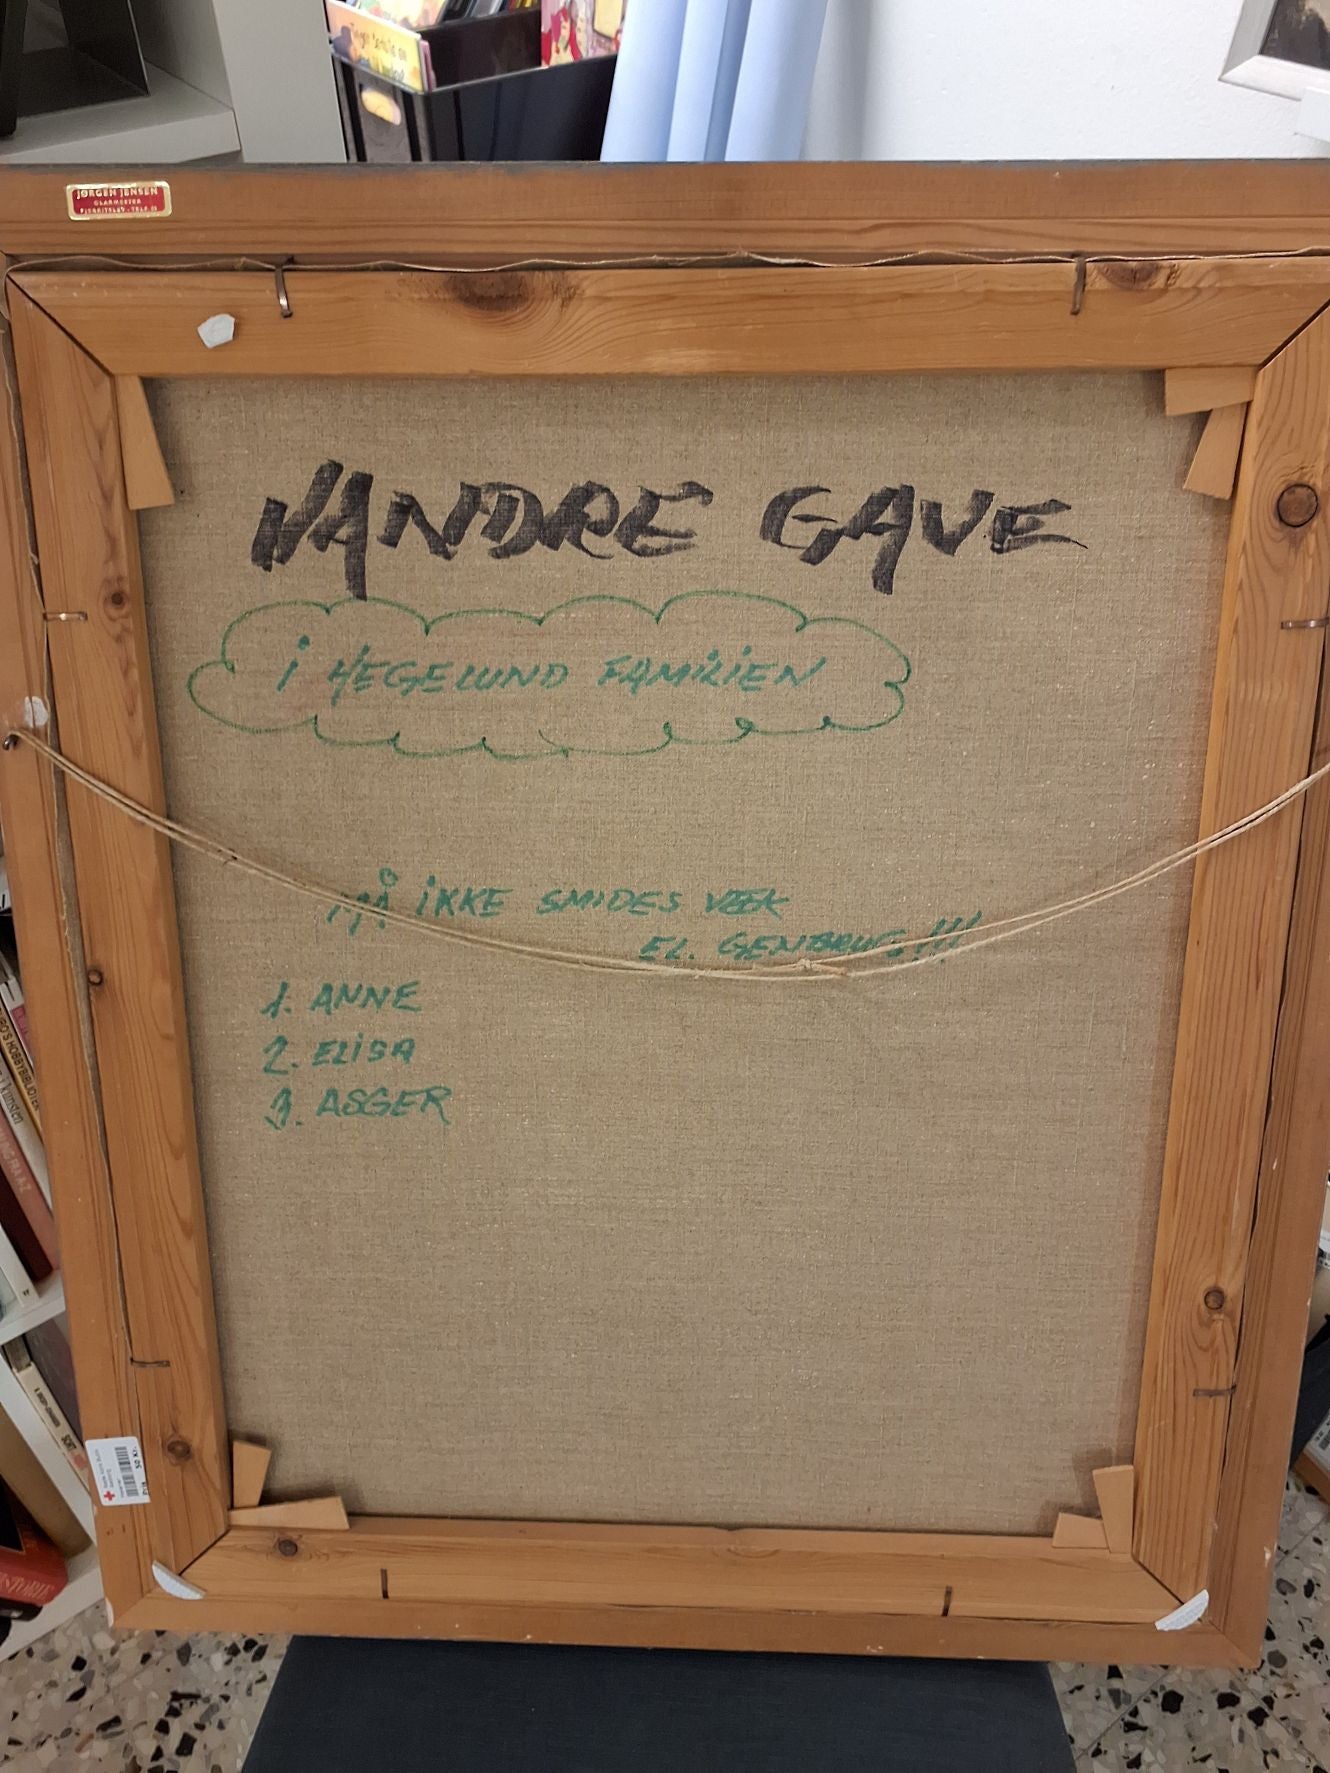 JØRGEN JENSEN
GLARMESTER
FJERRITSLEV - TELF.
VANDRE GAVE
i HEGELUND FAMILIEN
MÅ IKKE SMIDES VÆK
EL. GENBRUG!!!
1. ANNE
2. ELISA
3. ASGER
50 Kr.
HOBBYBIBLIOTEK